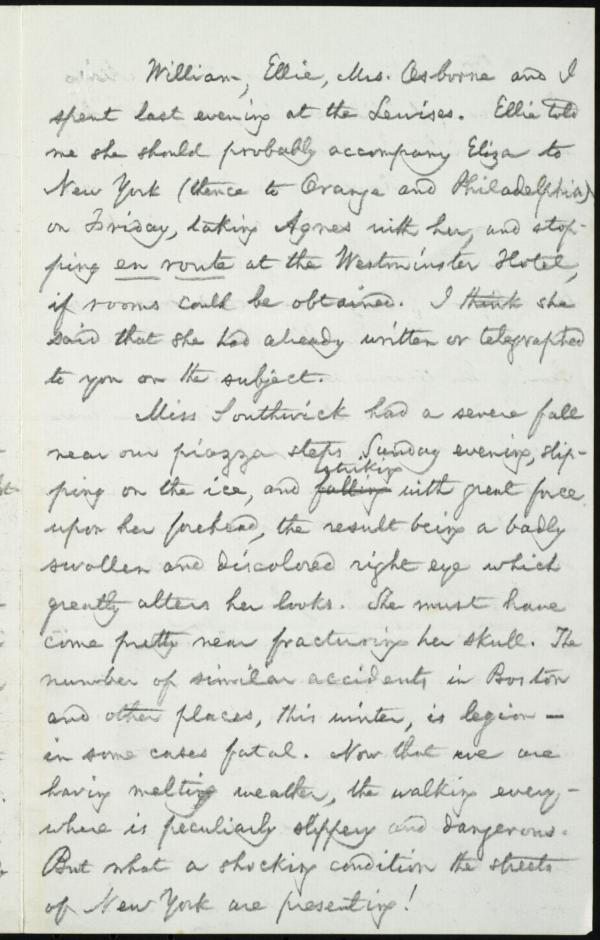 William, Ellie, Mrs. Osborne and I
spent last evening at the Lewises. Ellie told
me she should probably accompany Eliza to
New York (thence to Orange and Philadelphia)
on Friday, taking Agnes with her, and stop-
ping en route at the Westminster Hotel,
if rooms could be obtained. I think she
said that she had already written or telegraphed
to you on the subject.
Miss Southwick had a severe fall
near our piazza steps Sunday evening, slip-
striking
ping on the ice, and falling with great force
upon her forehead, the result being a badly
swollen and discolored right eye which
greatly alters her looks. She must have
come pretty near fracturing her skull. The
number of similar accidents in Boston
and other places, this winter, is legion —
in some cases fatal. Now that we are
having melting weather, the walking every-
where is peculiarly slippery and dangerous.
But what a shocking condition the streets
of New York are presenting!